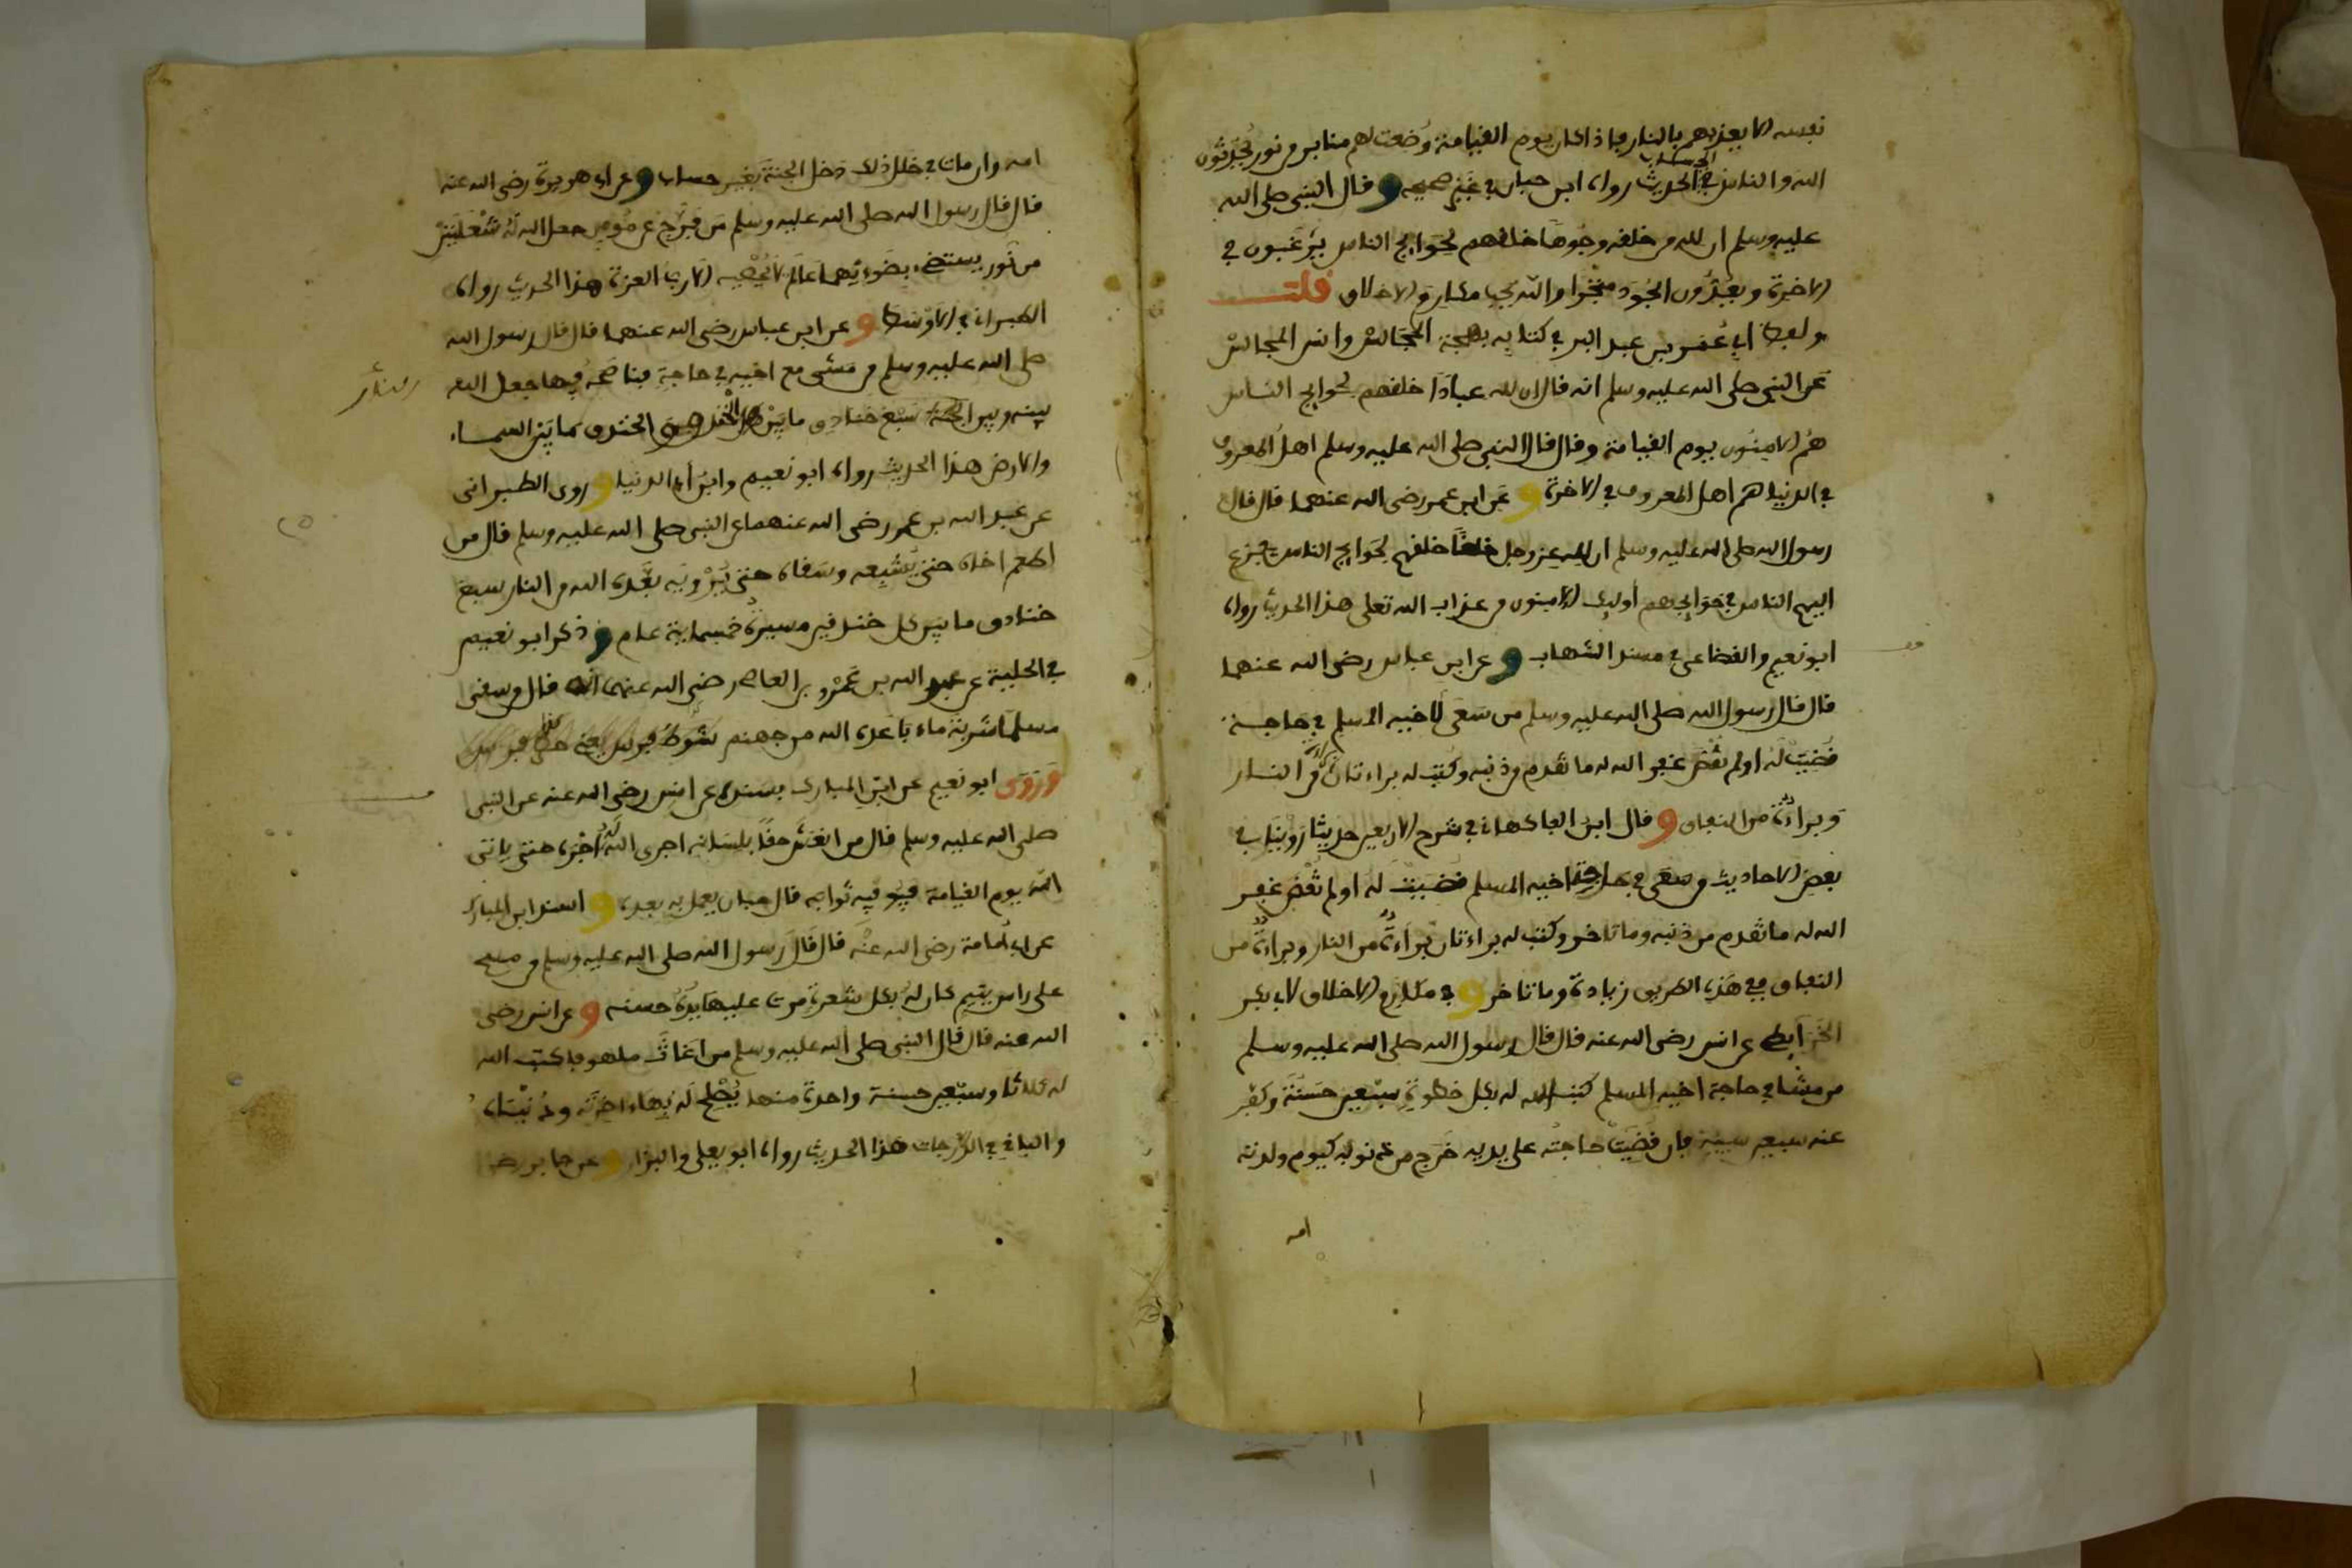 نفسه ألا يعذبهم بالنار فإذا كان يوم القيامة وُضعت لهم منابر من نور يُحَدِّثون
الله والناس في الحساب الحديث رواه ابن حبان في غير صحيحه وقال النبي صلى الله
عليه وسلم إن لله من خلقه وجوها خلقهم لحوايج الناس يرغبون في
الاخرة ويعُدّون الجُود متجرا والله يحب مكارم الاخلاق قلت
ولفظ ابي عُمَر بن عبد البر في كتابه بهجة المجالس وانس المجالس
عن النبي صلى الله عليه وسلم انه قال ان لله عبادا خلقهم لحوايج الناس
هُم الامِنُون يوم القيامة وقال قال النبي صلى الله عليه وسلم اهل المعروف
في الدنيا هم اهل المعروف في الاخرة و عن ابن عمر رضي الله عنهما قال قال
رسول الله صلى الله عليه وسلم ان لله عز وجل خلقا خلقهم لحوايج الناس يفزع
اليهم الناس في حَوَايجهم أوليك الامنون من عذاب الله تعلى هذا الحديث رواه
ابو نعيم والقضاعي في مسند الشهاب و عن ابن عباس رضي الله عنهما
قال قال رسول الله صلى الله عليه وسلم من سَعَى لاخيه المسلم في حاجة
قُضِيَت له اولم تقض غفر الله له ما تقدم من ذنبه وكُتِب له براءتان براءة من النار
وبراءةٌ من النفاق و قال ابن الفاكهاني في شرح الاربعين حديثا رُوّينا في
بعض الاحاديث من سعى في حاجة اخيه المسلم قضيت له اولم تُقْض غفر
الله له ما تقدم من ذنبه وما تاخر وكتب له براءتان براءةٌ من النار وبراءةٌ من
النفاق ففي هذه الطريق زيادة وما تاخر و في مكارم الاخلاق لابي بكر
الخَرَايطي عن انس رضي الله عنه قال قال رسول الله صلى الله عليه وسلم
من مشا في حاجة اخيه المسلم كتب الله له بكل خطوة سبْعين حَسَنَة وكفّر
عنه سبعين سيية فإن قُضِيَت حاجتُه على يديه خَرَج من ذنوبه كيوم ولدته
امه
امه وان مات في خَلَل ذلك دخل الجنة بغير حساب و عن ابي هريرة رضي الله عنه
قال قال رسول الله صلى الله عليه وسلم من فرّج عن مُومن جعل الله له شُعْلتين
من نُور يستضيء بضَوئهما عَالَم لا يُحْصيه الا ربّ العزة هذا الحديث رواه
الطبراني في الاوْسَط و عن ابن عباس رضي الله عنهما قال قال رسول الله
صلى الله عليه وسلم من مَشَى مع اخيه في حاجة فناصَحَه فيها جعل الله
بينه وبين النار سَبْع خنادق ما بين الخندق والخندق كما بَيْن السماء
والارض هذا الحديث رواه ابو نعيم وابن أبي الدنيا و روى الطبراني
عن عبد الله بن عمر رضي الله عنهما عن النبي صلى الله عليه وسلم قال من
اطعم اخاه حتى يُشْبِعه وسَقاه حتى يُرْويَه بعّده الله من النار سبع
خنادق ما بين كل خندقين مسيرة خمسماية عام و ذكر ابو نعيم
في الحلية عن عبد الله بن عَمْرو بن العاص رضي الله عنهما انه قال من سقى
مسلما شربة ماء بَاعَده الله من جهنم شَوْطَ فرس
وَرَوَى ابو نعيم عن ابن المبارك بسنده عن انس رضي الله عنه عن النبي
صلى الله عليه وسلم قال من انْعَش حقا بلسانه اجرى الله له اجْره حتى ياتي
الله يوم القيامة فيُوفّيه ثوابه قال حبان يعمل به بعده و اسند ابن المبارك
عن ابي أمامة رضي الله عنه قال قال رسول الله صلى الله عليه وسلم من مسح
على راس يتيم كان له بكل شعرة مرت عليها يدُه حسنة و عن انس رضي
الله عنه قال قال النبي صلى الله عليه وسلم من اغَاث ملهوفا كتب الله
له ثلاثا وسبْعين حسنة واحدة منها يُصْلح له بها ءاخرتَه ودُنْيَاه
والباقي في الدّرجات هذا الحديث رواه ابو يعلى والبزار و عن جابر رضي
النار